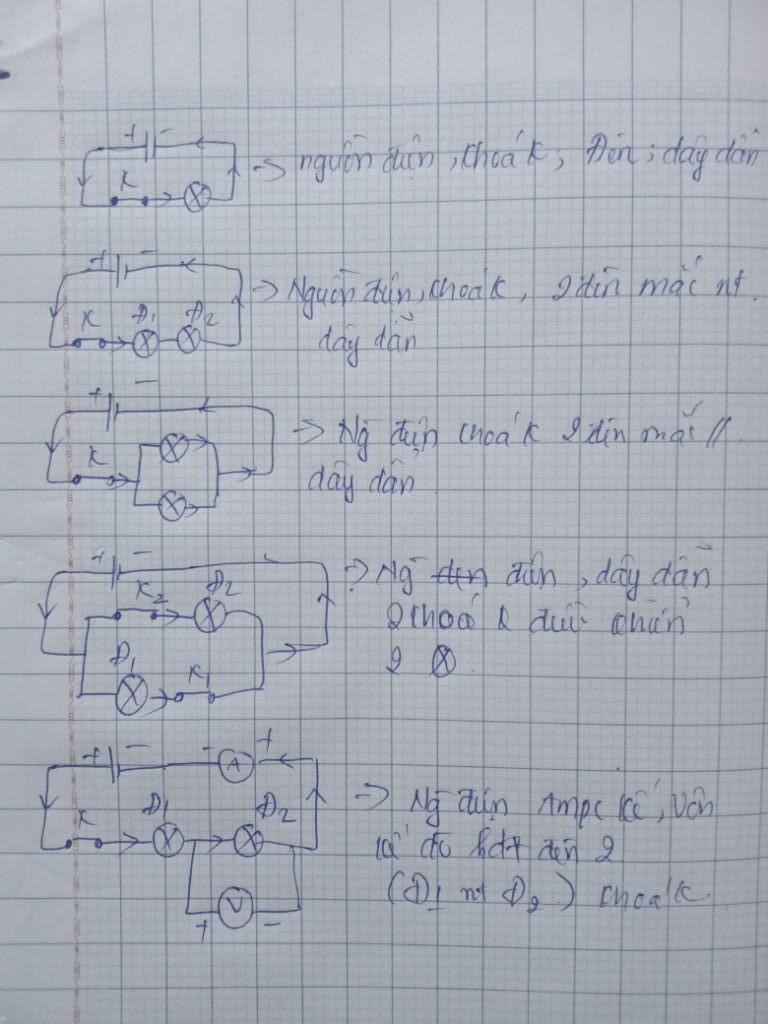 + -
K
→ nguồn điện, khoá K; Đèn; dây dẫn
+ -
K Đ1 Đ2
→ Nguồn điện, khoá K, 2 đèn mắc nt.
dây dẫn
+ -
K
→ Ng điện khoá K 2 đèn mắc //.
dây dẫn
+ -
K2 Đ2
Đ1 K1
→ Ng điện, dây dẫn
2 khoá K điều khiển
2 ⊗.
+ - - A +
K Đ1 Đ2
V
+ -
→ Ng điện Ampe kế, Vôn
kế đo hđt đèn 2
(Đ1 nt Đ2) khoá K.